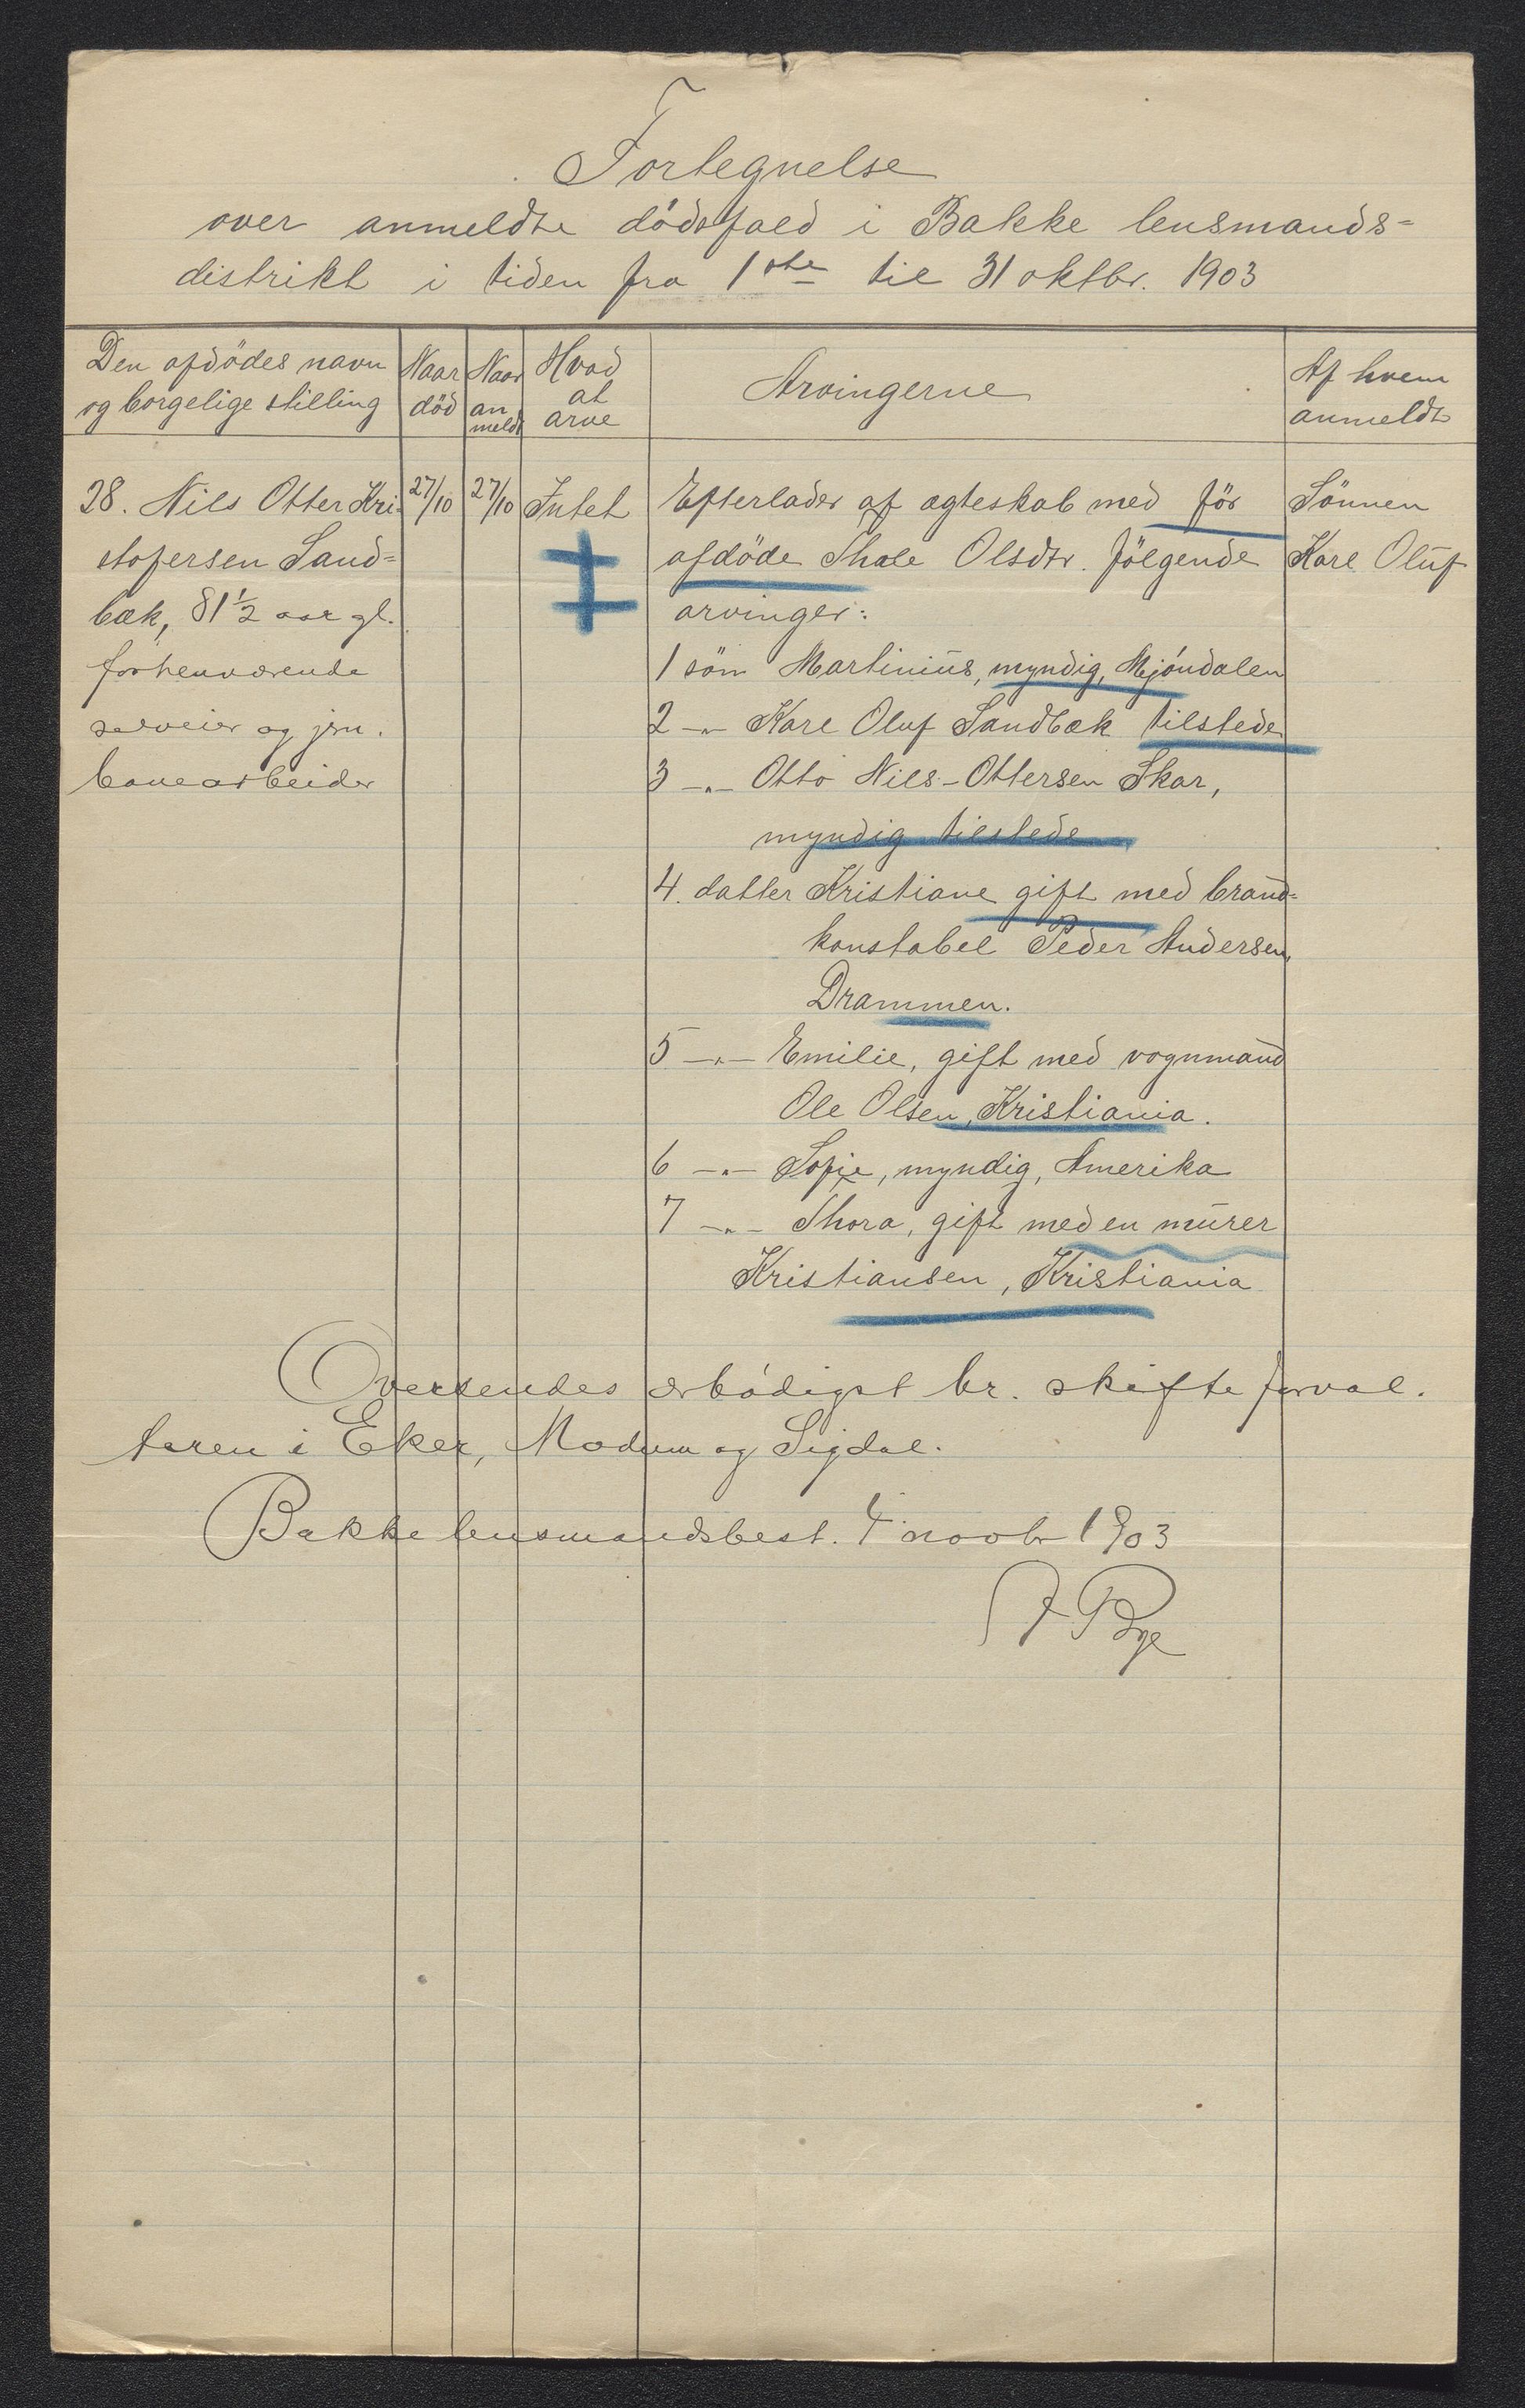 Fortegnelse
over anmeldte dödsfald i Bakke lensmands=
distrikt i tiden fra 1ste til 31 oktbr. 1903
Den afdödes navn
og borgelige stilling
Naar
död
Naar
an
meldt
Hvad
at
arve
Arvingerne
Af hvem
anmeldt
28. Nils Otter Kri-
stofersen Sand=
bæk, 81½ aar gl.
forhenværende
selveier og jern.
banearbeider
27/10
27/10
Intet
Efterlader af ægteskab med för
afdöde Thale Olsdtr. fölgende
arvinger:
1 sön Martinius, myndig, Mjöndalen
2 -"- Karl Oluf Sandbæk tilstede
3 -"- Otto Nils-Ottersen Skar,
myndig tilstede
4. datter Kristiane gift med brand=
konstabel Peder Andersen,
Drammen.
5 -"- Emilie, gift med vognmand
Ole Olsen, Kristiania.
6 -"- Sofie, myndig, Amerika
7 -"- Thora, gift med en murer
Kristiansen, Kristiania
Sönnen
Karl Oluf
Oversendes ærbödigst hr. skifteforval.
teren i Eker, Modum og Sigdal.
Bakke lensmandsbest. 4 novbr 1903
Bye